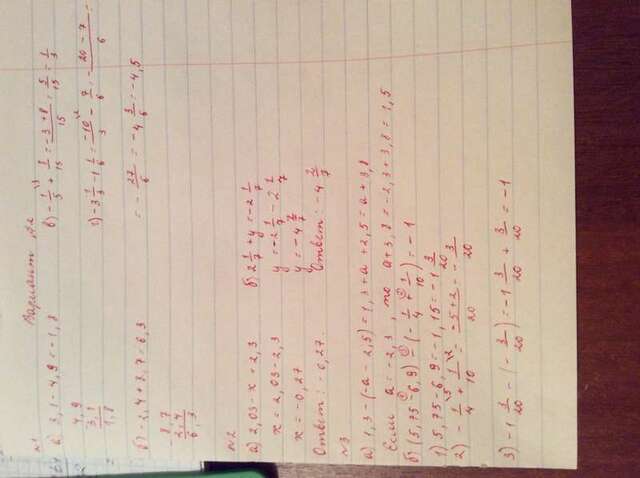 Вариант №2
№1
а) 3,1 - 4,9 = -1,8
4,9
3,1
1,8
б) -2,4 + 8,7 = 6,3
- 8,7
2,4
6,3
в) -1/5 \3 + 8/15 = (-3+8)/15 = 5/15 = 1/3
г) -3 1/3 - 1 1/6 = -10/3 \2 - 7/6 = (-20-7)/6 =
= -27/6 = -4 3/6 = -4,5
№2
а) 2,03 - x = 2,3
x = 2,03 - 2,3
x = -0,27
Ответ: -0,27.
б) 2 1/7 + y = -2 1/7
y = -2 1/7 - 2 1/7
y = -4 2/7
Ответ: -4 2/7
№3
а) 1,3 - (-a - 2,5) = 1,3 + a + 2,5 = a + 3,8
Если a = -2,3, то a + 3,8 = -2,3 + 3,8 = 1,5
б) (5,75 - 6,9) - (-1/4 + 1/10) = -1
1) 5,75 - 6,9 = -1,15 = -1 3/20
2) -1/4 \5 + 1/10 \2 = (-5+2)/20 = -3/20
3) -1 3/20 - (-3/20) = -1 3/20 + 3/20 = -1